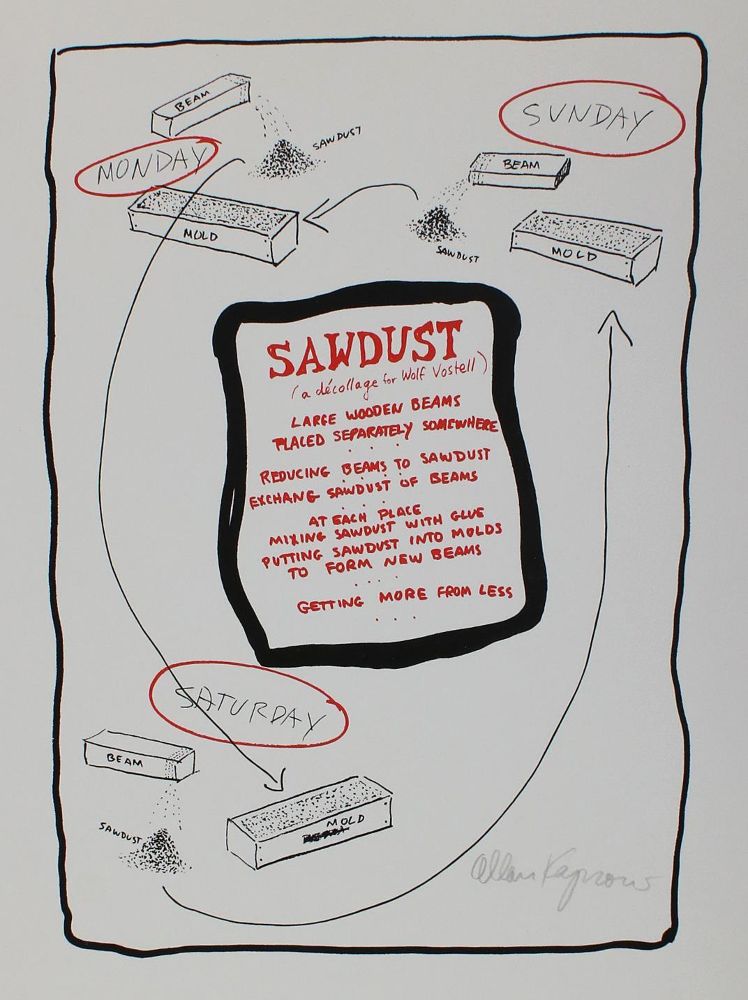 BEAM
SAWDUST
MONDAY
MOLD
SUNDAY
BEAM
SAWDUST
MOLD
SAWDUST
(a décollage for Wolf Vostell)
LARGE WOODEN BEAMS
PLACED SEPARATELY SOMEWHERE
. . .
REDUCING BEAMS TO SAWDUST
. . . .
EXCHANG SAWDUST OF BEAMS
. . . .
AT EACH PLACE
MIXING SAWDUST WITH GLUE
PUTTING SAWDUST INTO MOLDS
TO FORM NEW BEAMS
. . . .
GETTING MORE FROM LESS
. . . .
SATURDAY
BEAM
SAWDUST
MOLD
Allan Kaprow